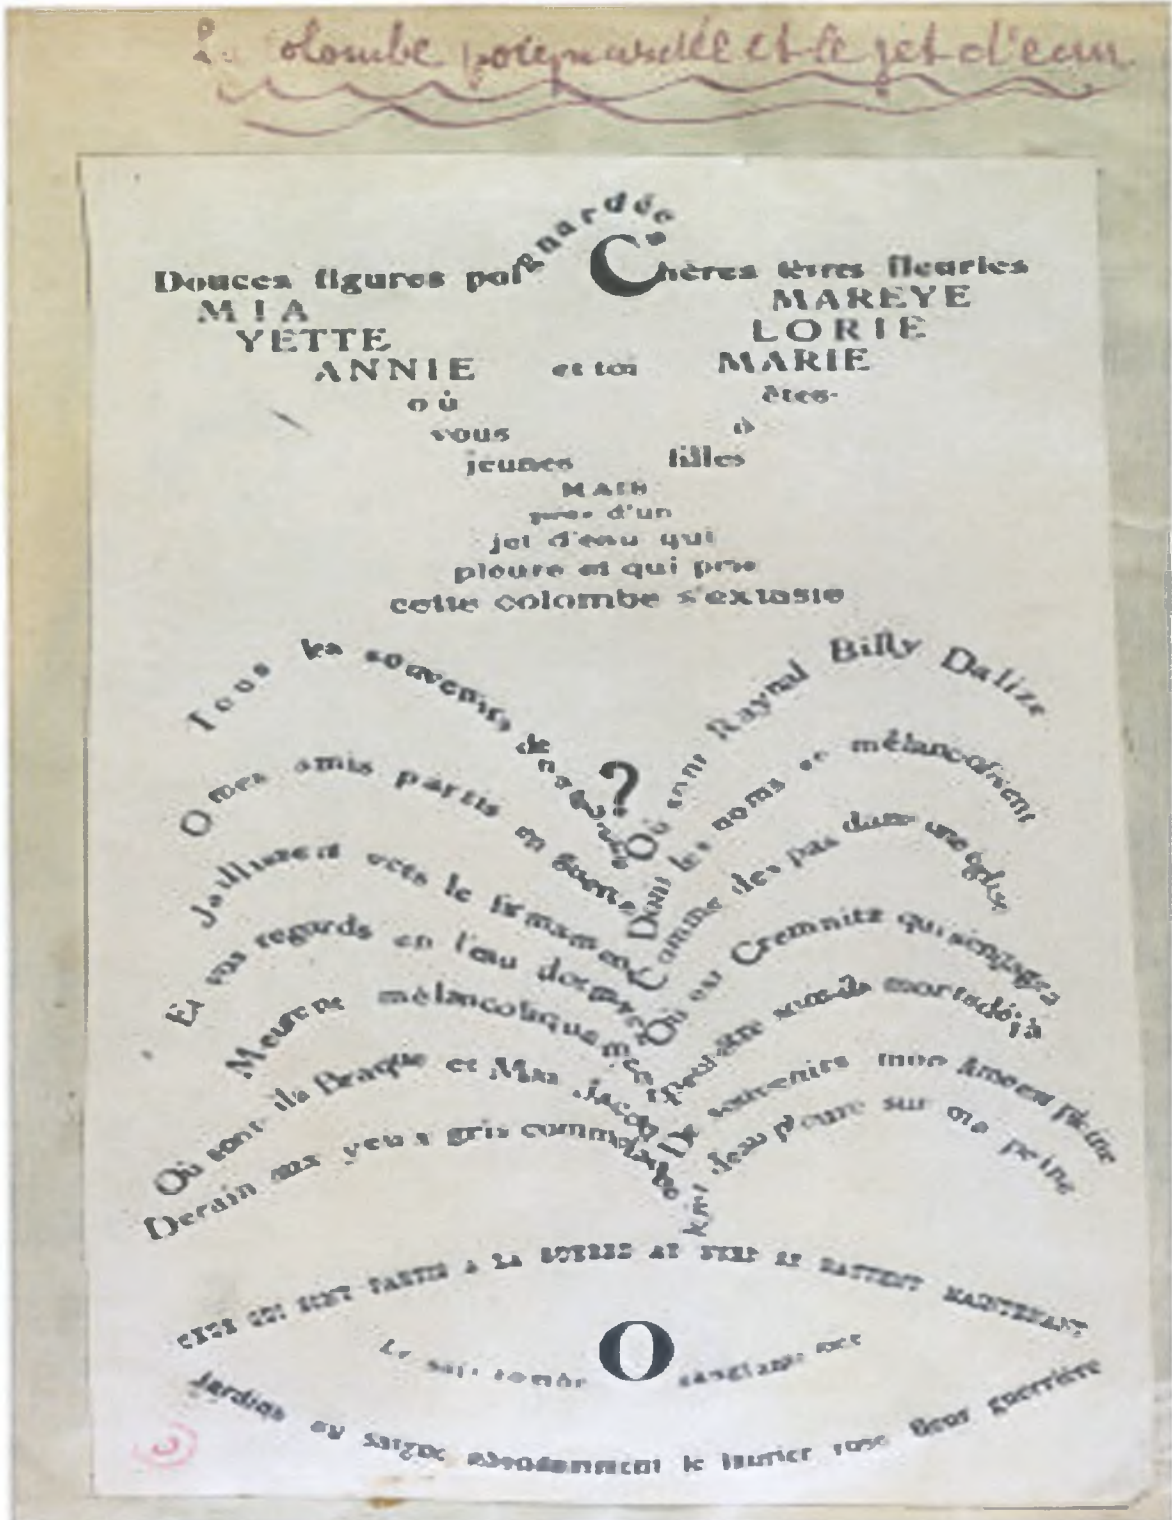 olombe poignardée et le jet d'eau
Douces figures poignardées Chères lèvres fleuries
MIA MAREYE
YETTE LORIE
ANNIE et toi MARIE
où êtes-
vous ô
jeunes filles
MAIS
près d'un
jet d'eau qui
pleure et qui prie
cette colombe s'extasie
Tous les souvenirs de naguère
O mes amis partis en guerre
Jaillissent vers le firmament
Et vos regards en l'eau dormant
Meurent mélancoliquement
Où sont-ils Braque et Max Jacob
Derain aux yeux gris comme l'aube
?
Où sont Raynal Billy Dalize
Dont les noms se mélancolisent
Comme des pas dans une église
Où est Cremnitz qui s'engagea
Peut-être sont-ils morts déjà
De souvenirs mon âme est pleine
Le jet d'eau pleure sur ma peine
CEUX QUI SONT PARTIS A LA GUERRE AU NORD SE BATTENT MAINTENANT
Le soir tombe O sanglante mer
Jardins où saigne abondamment le laurier rose fleur guerrière